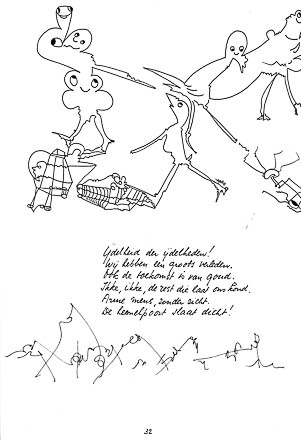 IJdelheid der ijdelheden!
Wij hebben een groots verleden.
Ook de toekomst is van goud.
Ikke, ikke, de rest die laat ons koud.
Arme mens, zonder zicht.
De hemelpoort slaat dicht!
32